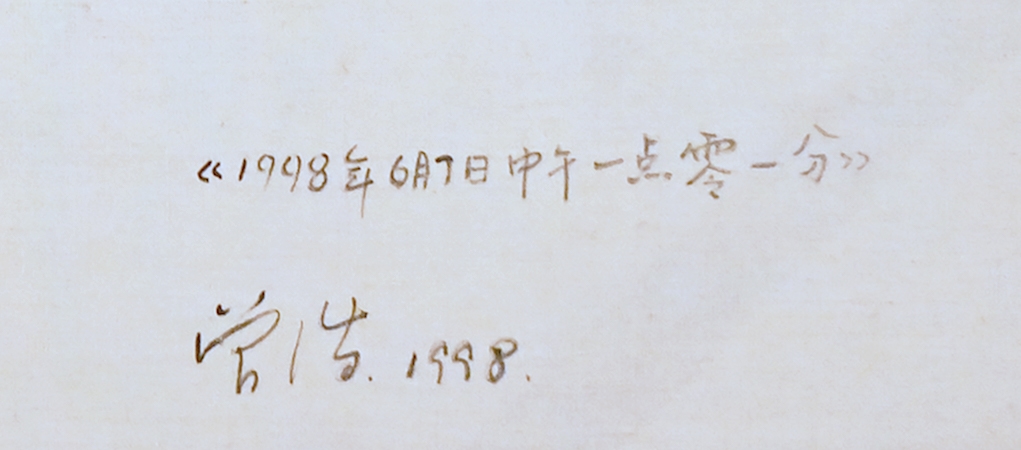 《1998年6月7日中午一点零一分》
曾浩.1998.